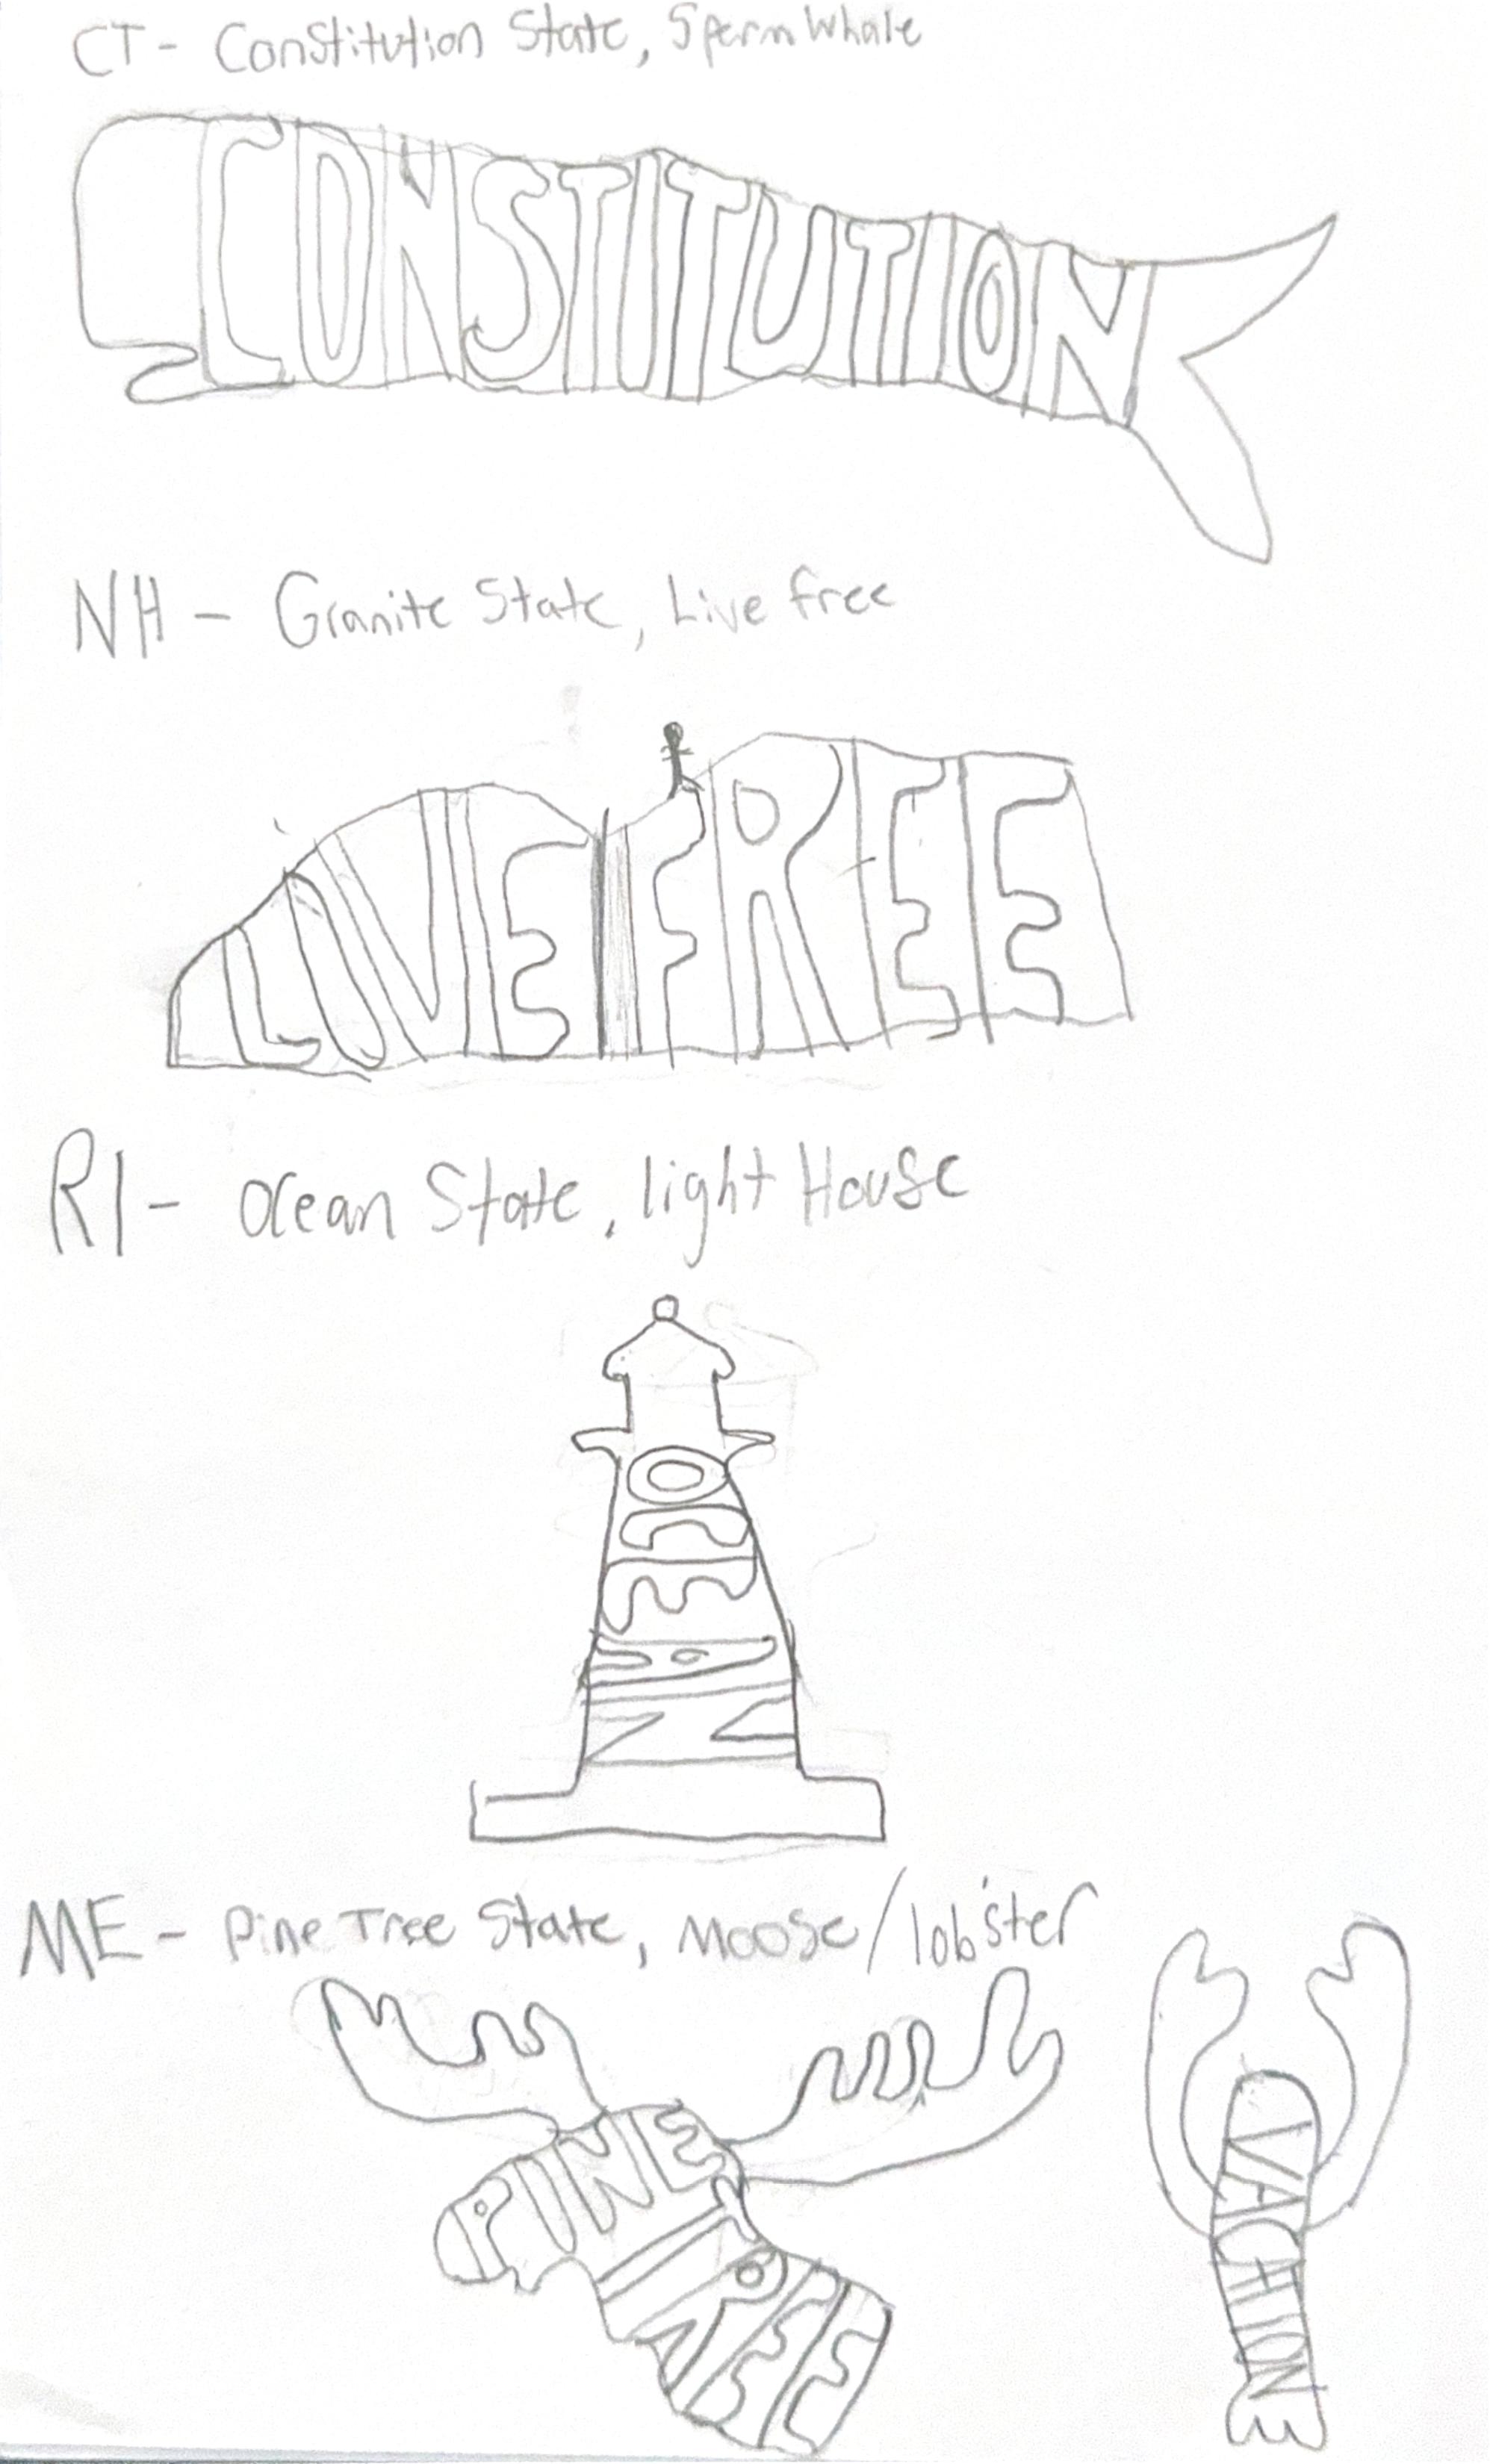 CT - Constitution State, Sperm Whale
CONSTITUTION
NH - Granite State, Live free
LIVE FREE
RI - Ocean State, light House
OCEAN
ME - Pine Tree State, Moose/lobster
PINE
TREE